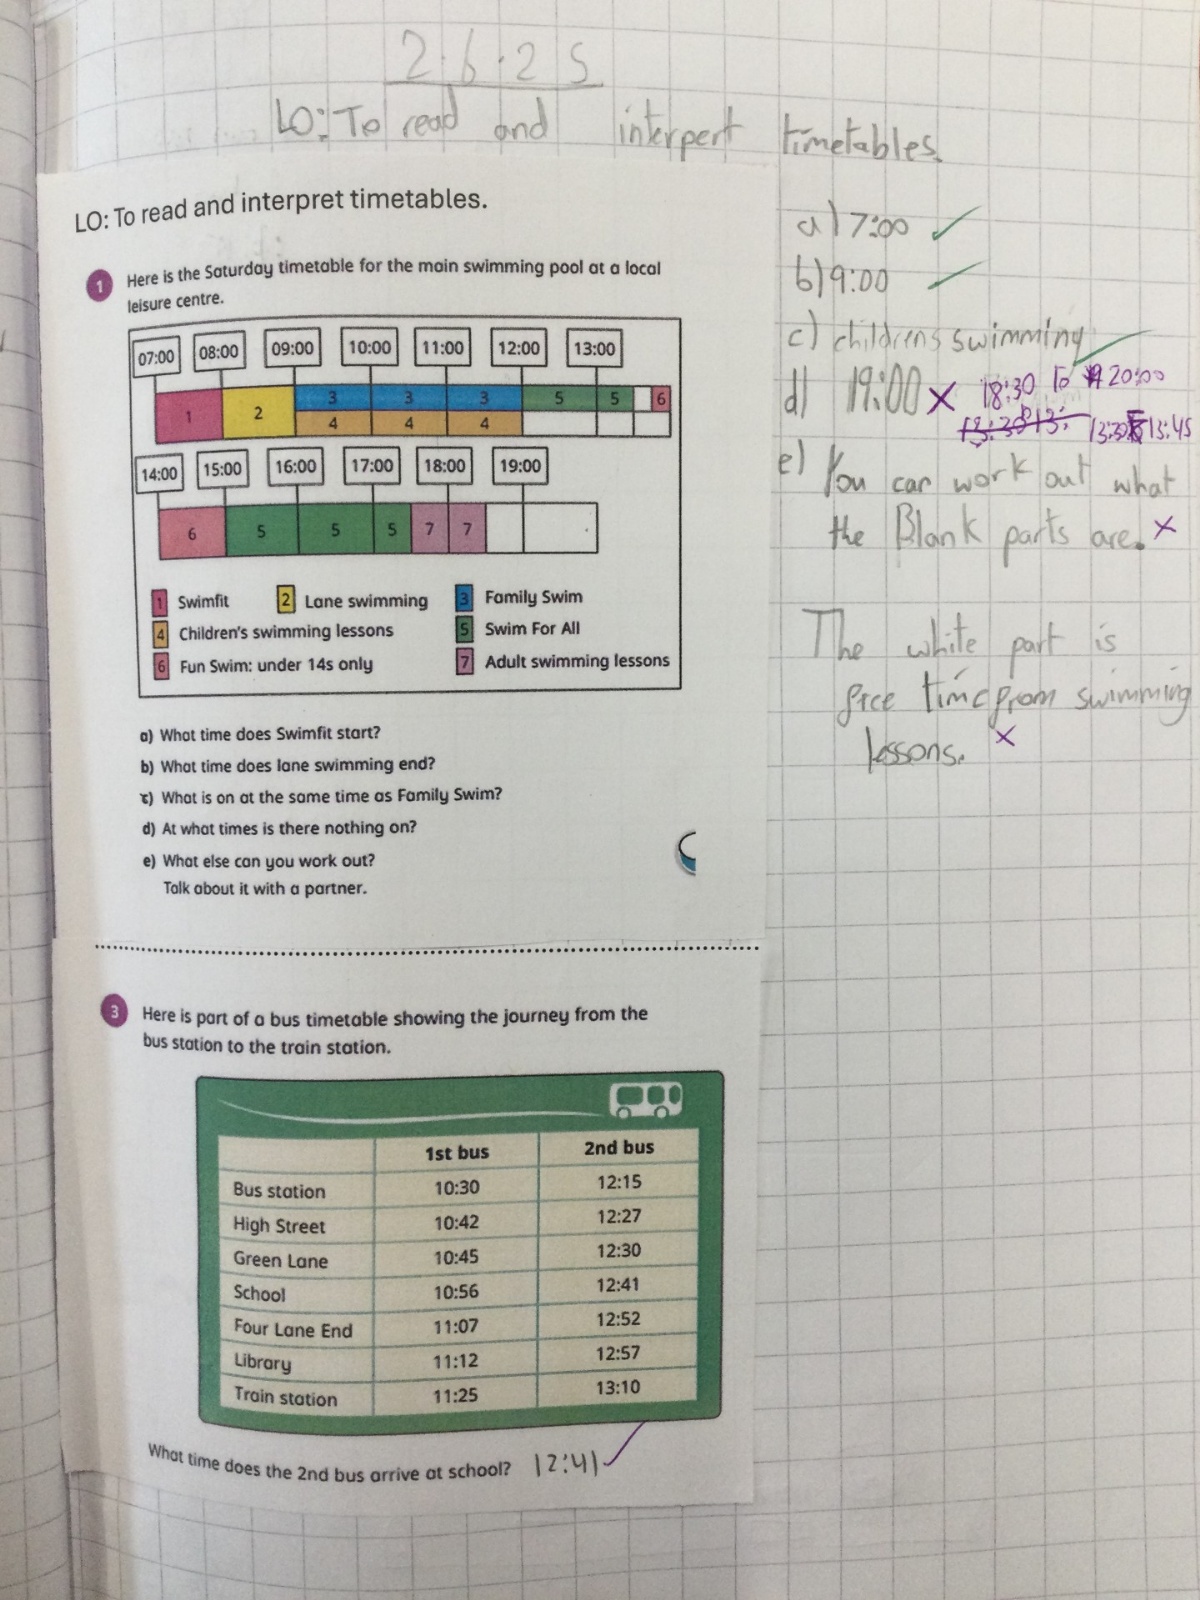 2.6.25
LO: To read and interpert timetables.
LO: To read and interpret timetables.
1 Here is the Saturday timetable for the main swimming pool at a local
leisure centre.
07:00 08:00 09:00 10:00 11:00 12:00 13:00
1 2 3 3 3 5 5 6
4 4 4
14:00 15:00 16:00 17:00 18:00 19:00
6 5 5 5 7 7
1 Swimfit 2 Lane swimming 3 Family Swim
4 Children's swimming lessons 5 Swim For All
6 Fun Swim: under 14s only 7 Adult swimming lessons
a) What time does Swimfit start?
b) What time does lane swimming end?
c) What is on at the same time as Family Swim?
d) At what times is there nothing on?
e) What else can you work out?
Talk about it with a partner.
a) 7:00 ✓
b) 9:00 ✓
c) childrens swimming ✓
d) 19:00 ✗ 18:30 to 20:00
13:30 13:45
e) You can work out what
the Blank parts are. ✗
The white part is
free time from swimming
lessons. ✗
3 Here is part of a bus timetable showing the journey from the
bus station to the train station.
1st bus 2nd bus
Bus station 10:30 12:15
High Street 10:42 12:27
Green Lane 10:45 12:30
School 10:56 12:41
Four Lane End 11:07 12:52
Library 11:12 12:57
Train station 11:25 13:10
What time does the 2nd bus arrive at school? 12:41 ✓